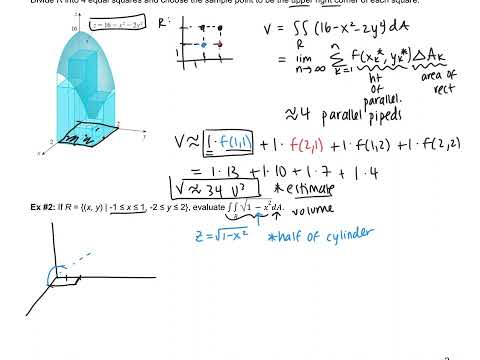 Divide R into 4 equal squares and choose the sample point to be the upper right corner of each square.
z = 16 − x² − 2y²
R:
V = ∬ (16 − x² − 2y²) dA
R
= lim n→∞ n Σ k=1 f(xₖ*, yₖ*) ΔAₖ
ht of parallel.
area of rect
≈ 4 parallel pipeds
V ≈ 1·f(1,1) + 1·f(2,1) + 1·f(1,2) + 1·f(2,2)
= 1·13 + 1·10 + 1·7 + 1·4
V ≈ 34 U³ *estimate
Ex #2: If R = {(x, y) | -1 ≤ x ≤ 1, -2 ≤ y ≤ 2}, evaluate ∬ √1 − x² dA.
R
volume
z = √1−x² *half of cylinder